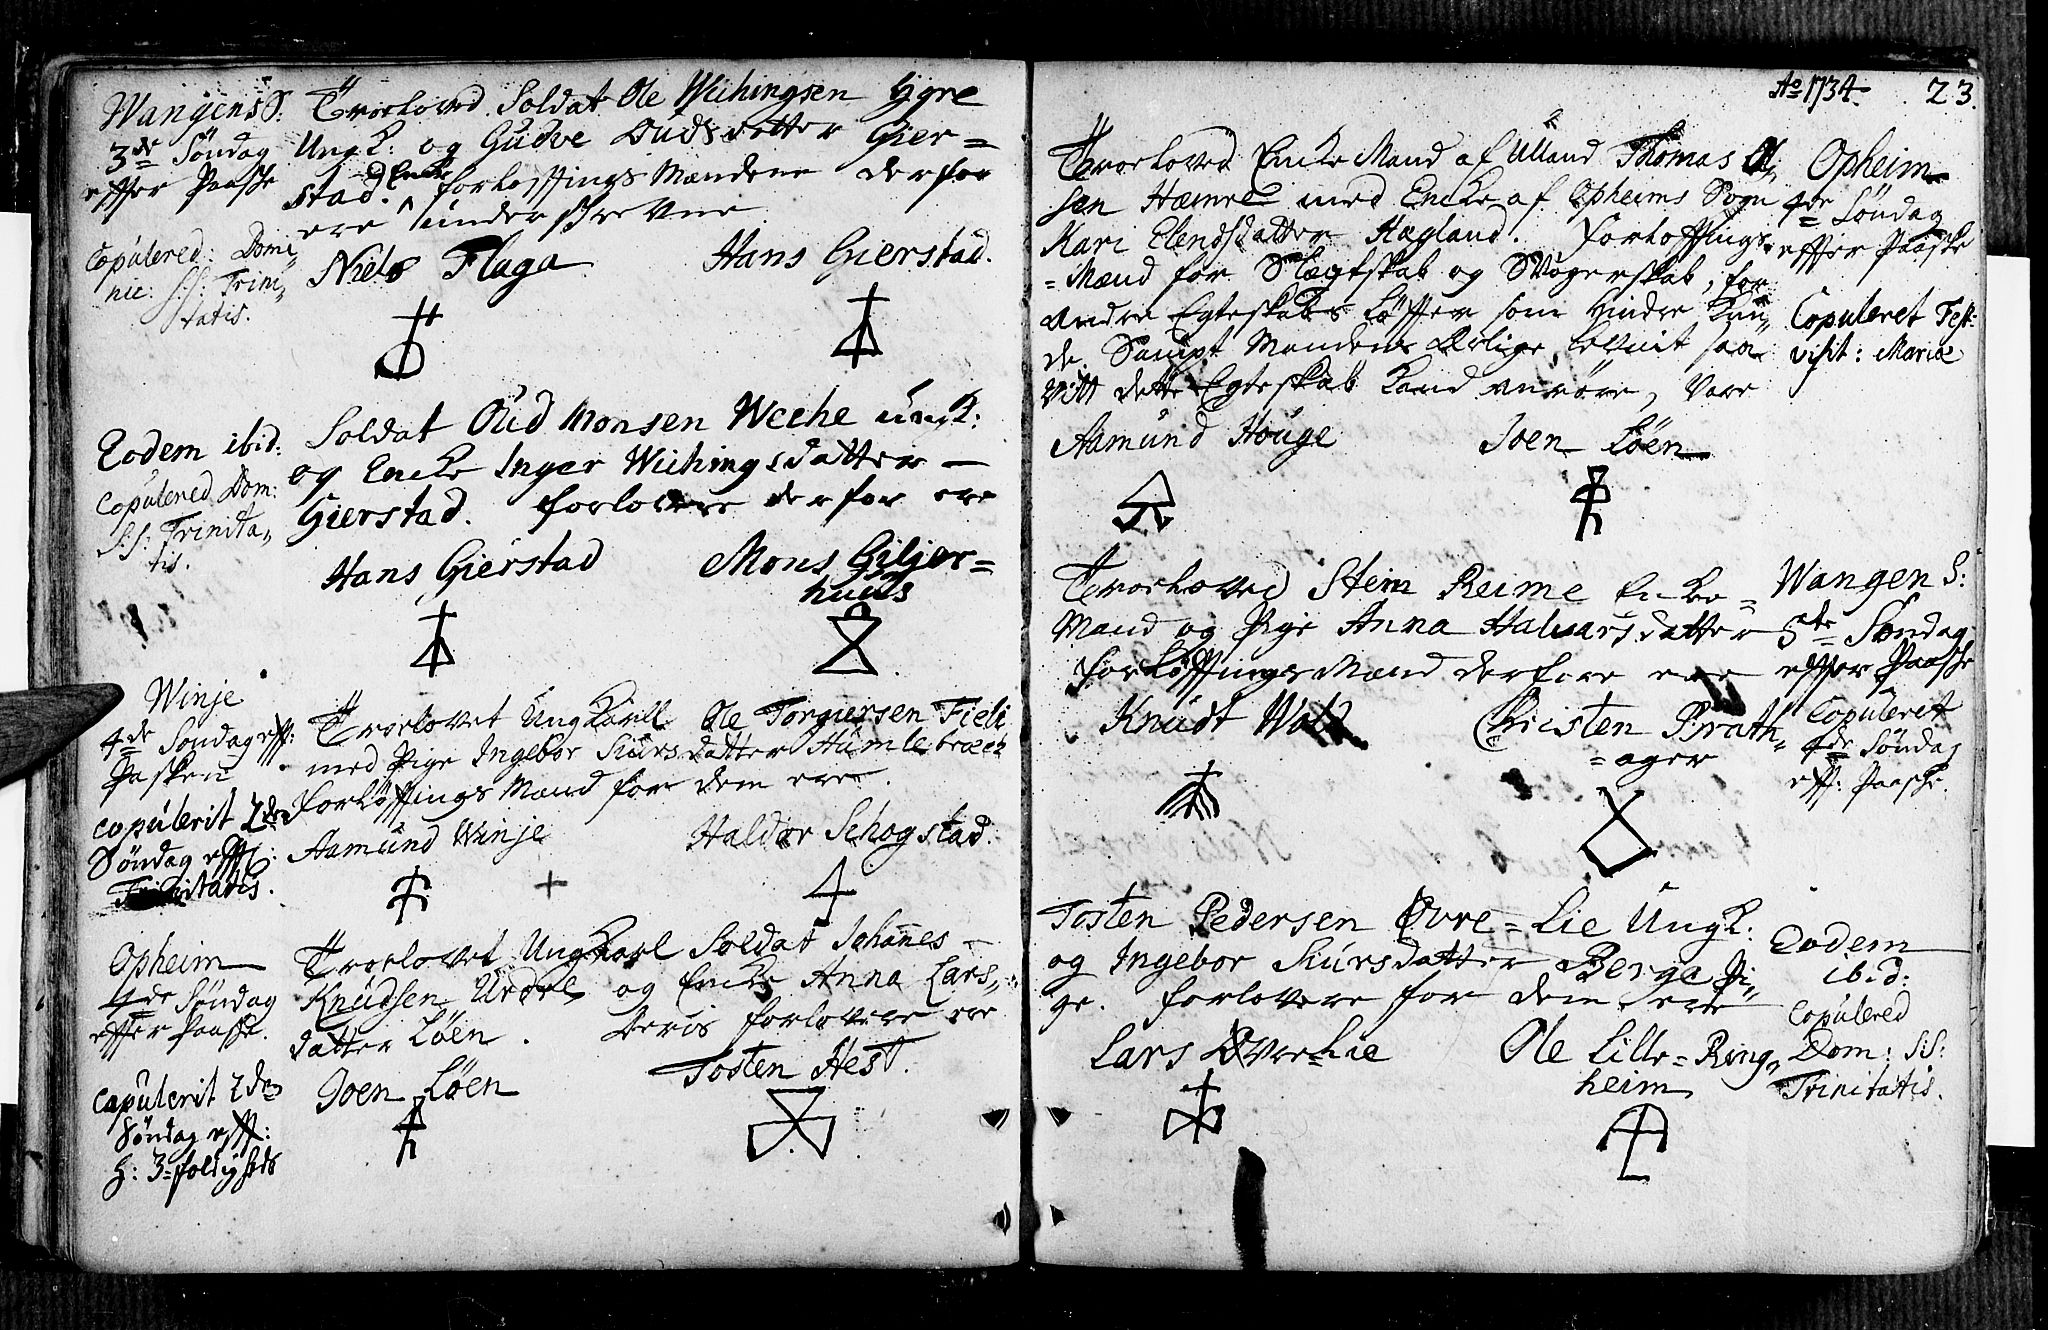 Wangens S:
3de Söndag
effter Paasche
Copulered: Domi,,
nic: S.S: Trini,,
tatis.
Troelovd Soldat Ole Wichingsen Ygre
Ungk: og Gudve Oudsdatter Gier=
stad. Encke forlofftings Mændene derfor
ere underskrevne
Niels Flaga Hans Gierstad.
Eodem ibid:
Copulered Dom:
S:S: Trinita,,
tis.
Soldat Oud Monsen Weehe ungk:
og Encke Inger Wichingsdatter
Gierstad. forlovere derfor ere
Hans Gierstad Mons Giljer=
huus
Winje
4de Söndag eff:
Pasken
Copulerit 2den
Söndag efft:
Trinitatis.
Troelovet Ungkarll Ole Torgiersen Fieli
med Pige Ingebor Siursdatter Humlebræch
Forløfftings Mænd for dem ere.
Aamund Winje Haldor Schogstad.
Opheim
4de Söndag
effter Paasche.
Copulerit 2den
Söndag efft:
H: 3-foldigheds
Troelovet Ungkarl Soldat Johannes
Knudsen Urdel og Encke Anna Lars,,
datter Löen. Deris forlovere ere
Joen Löen Tosten Hest.
Ao 1734. 23.
Troeloved Encke Mand af Ulland Thomas Ol,,
sen Hæmre med Encke af Opheims Sogn
Kari Elendsdatter Hægland. Forloffings
=Mænd for Slegtskab og Svogerskab, for
andre Egteskabs Løffter som hindre kun,,
de, Sampt Mandens Ærlige Levnit saa
vitt dette Egteskab kand anröre, Vare
Aamund Houge Joen Löen
Opheim
4de Söndag
effter Paasche
Copuleret Fest:
Visit: Mariæ
Troeloved Stein Reime Encke=
Mand og Pige Anna Halvarsdatter
forløfftings Mænd derfore ere
Knudt Wold Christen Brath,,
=ager
Wangen S:
5te Söndag
effter Paasche
Copuleret
4de Söndag
eff: Paasche.
Tosten Pedersen Øvre=Lie Ungk:
og Ingebor Siursdatter Berge Pi,,
ge. forlovere for dem ere
Lars Øvre Lie Ole Lille=Ring,,
heim
Eodem
ibid:
Copulered
Dom: S:S:
Trinitatis.